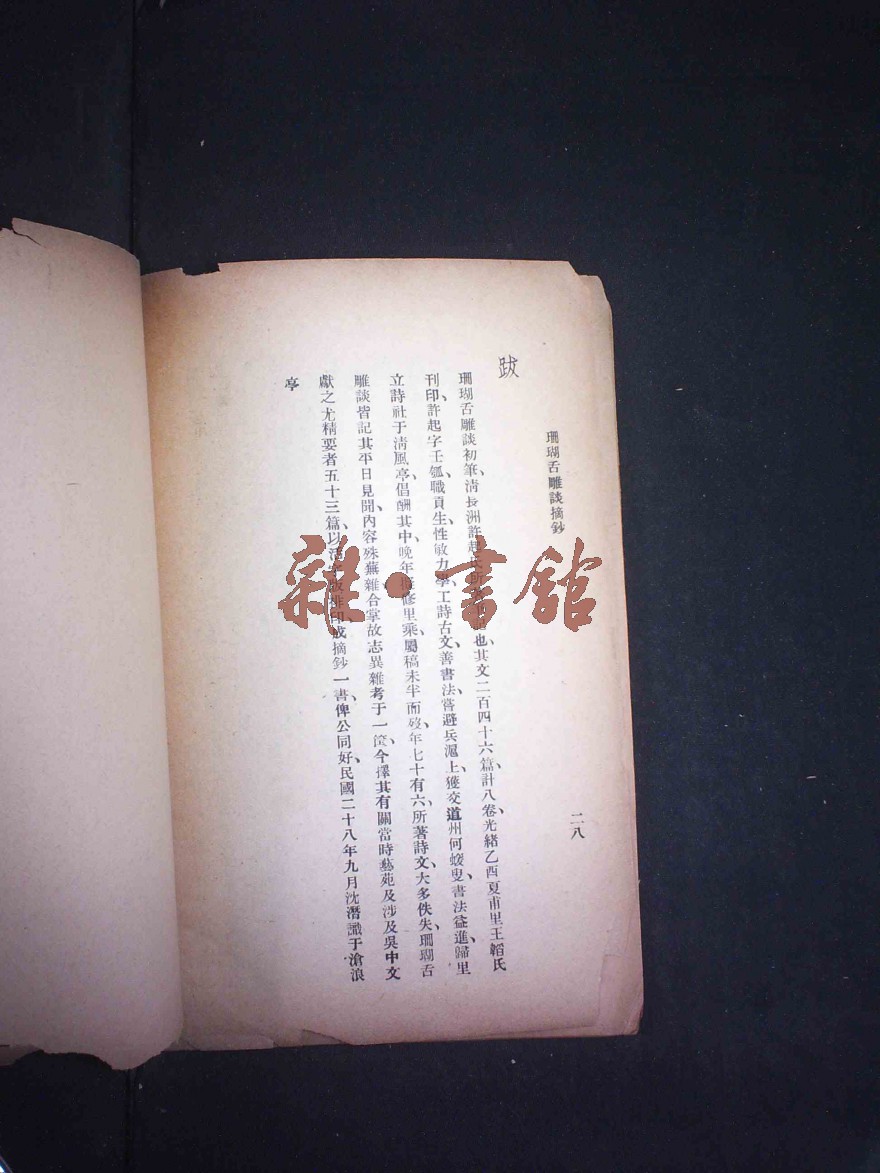 珊瑚舌雕談摘鈔
二八
跋
珊瑚舌雕談初筆、清長洲許起氏所著筆記也、其文二百四十六篇、計八卷、光緒乙酉夏甫里王韜氏
刊印、許起字壬瓠、職貢生、性敏力學、工詩古文、善書法、嘗避兵滬上、獲交道州何蝯叟、書法益進、歸里
立詩社于清風亭、倡酬其中、晚年修里乘、屬稿未半而歿、年七十有六、所著詩文、大多佚失、珊瑚舌
雕談皆記其平日見聞、內容殊蕪雜、合掌故志異雜考于一篋、今擇其有關當時藝苑及涉及吳中文
獻之尤精要者五十三篇、以活字版排印成摘鈔一書、俾公同好、民國二十八年九月沈潛識于滄浪
亭
雜·書館